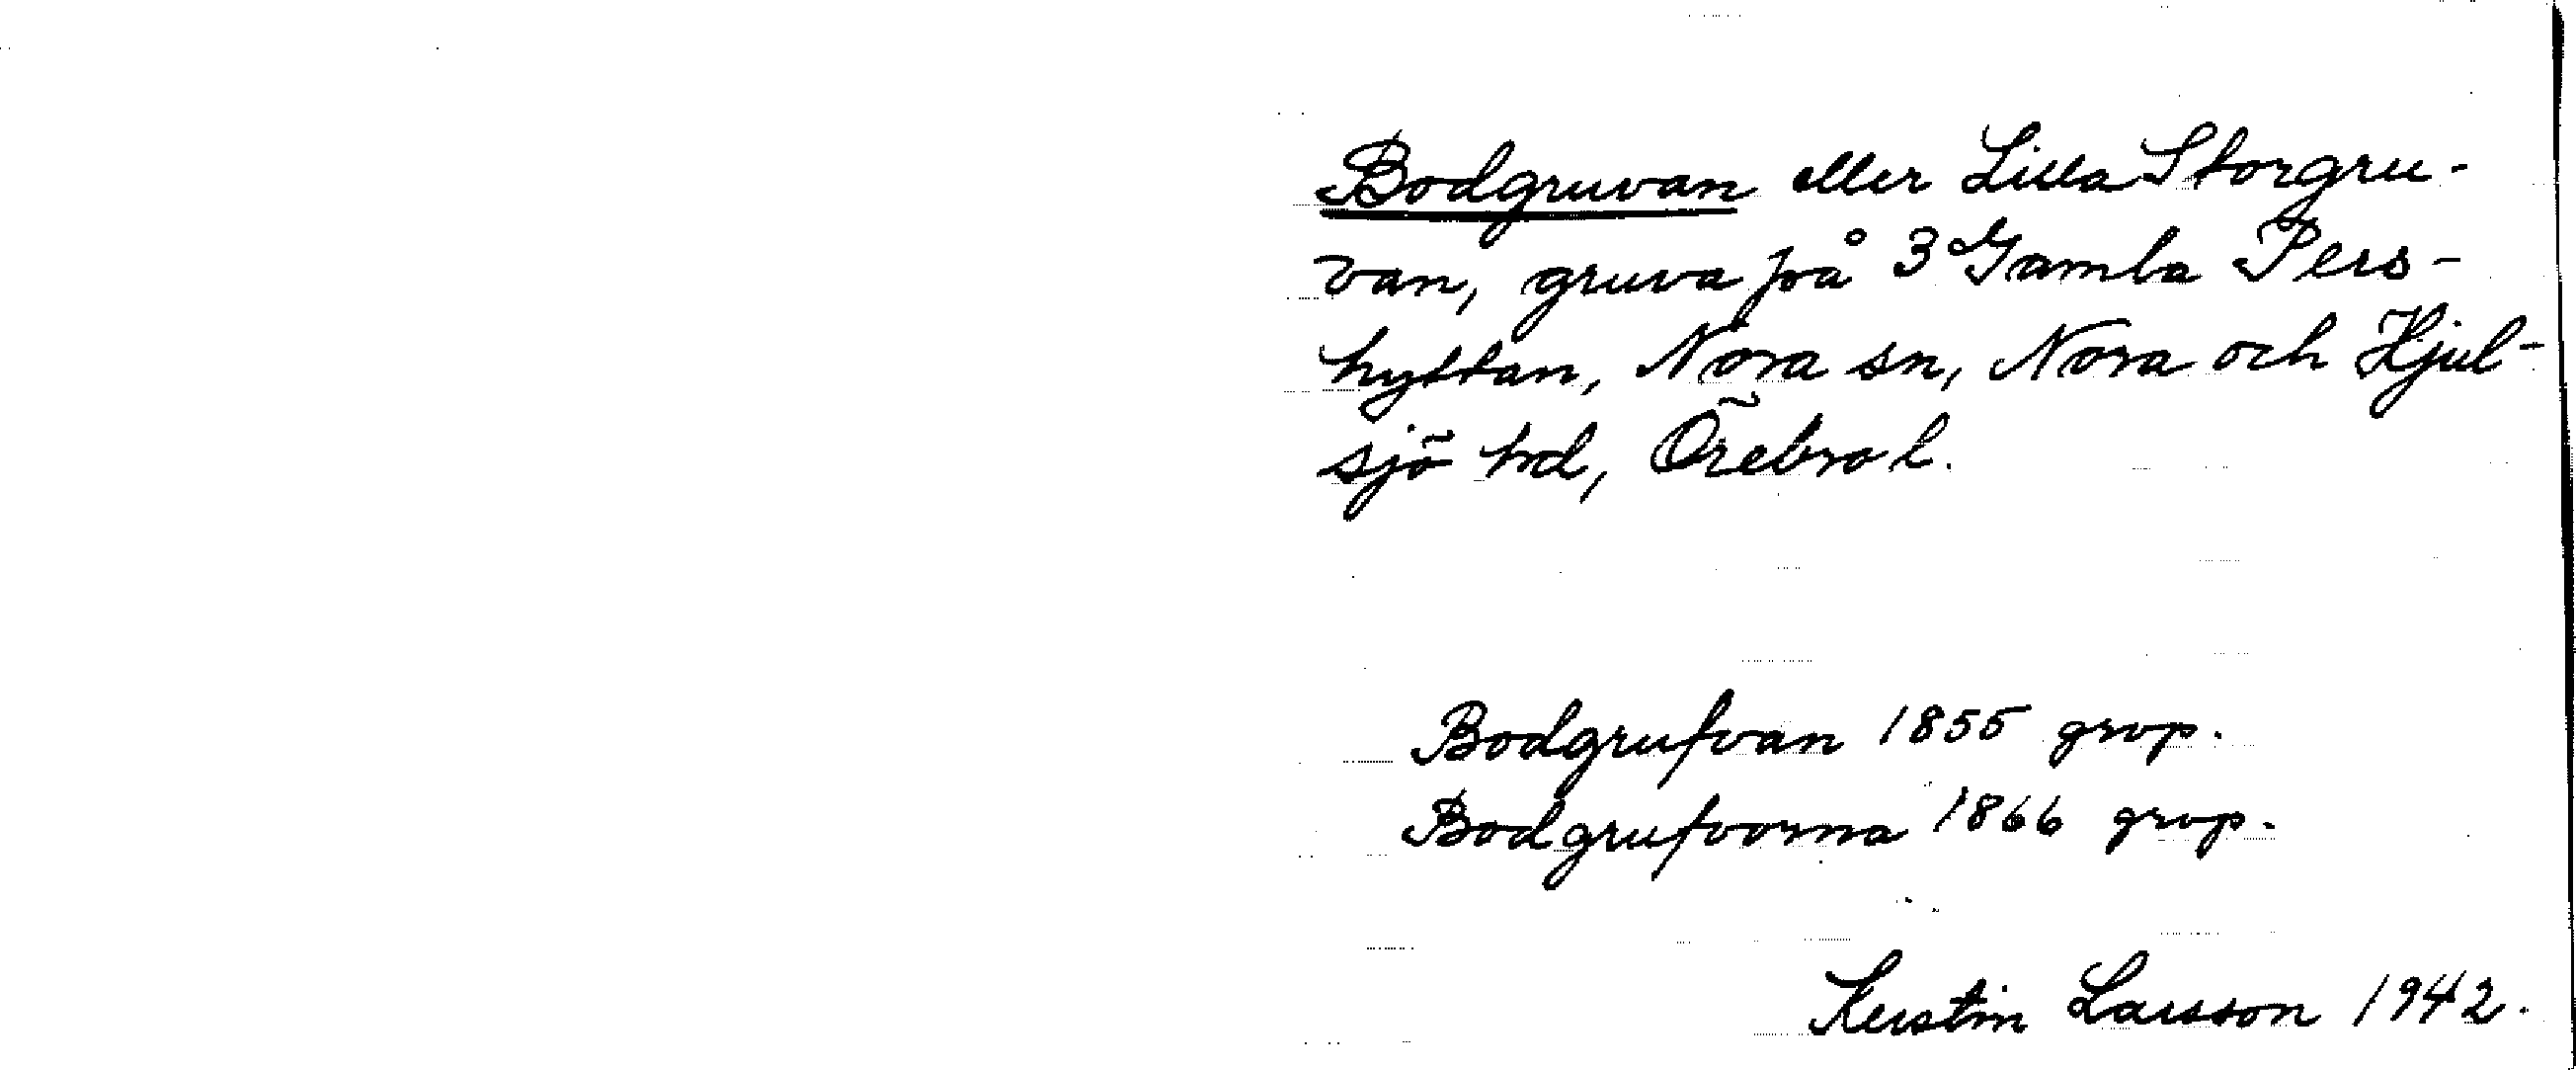 Bodgruvan eller Lilla Storgru-
van, gruva på 3 Gamla Pers-
hyttan, Nora sn, Nora och Hjul-
sjö hd, Örebro l.
Bodgrufvan 1855 grvp.
Bodgrufvorna 1866 grvp.
Kerstin Larsson 1942.